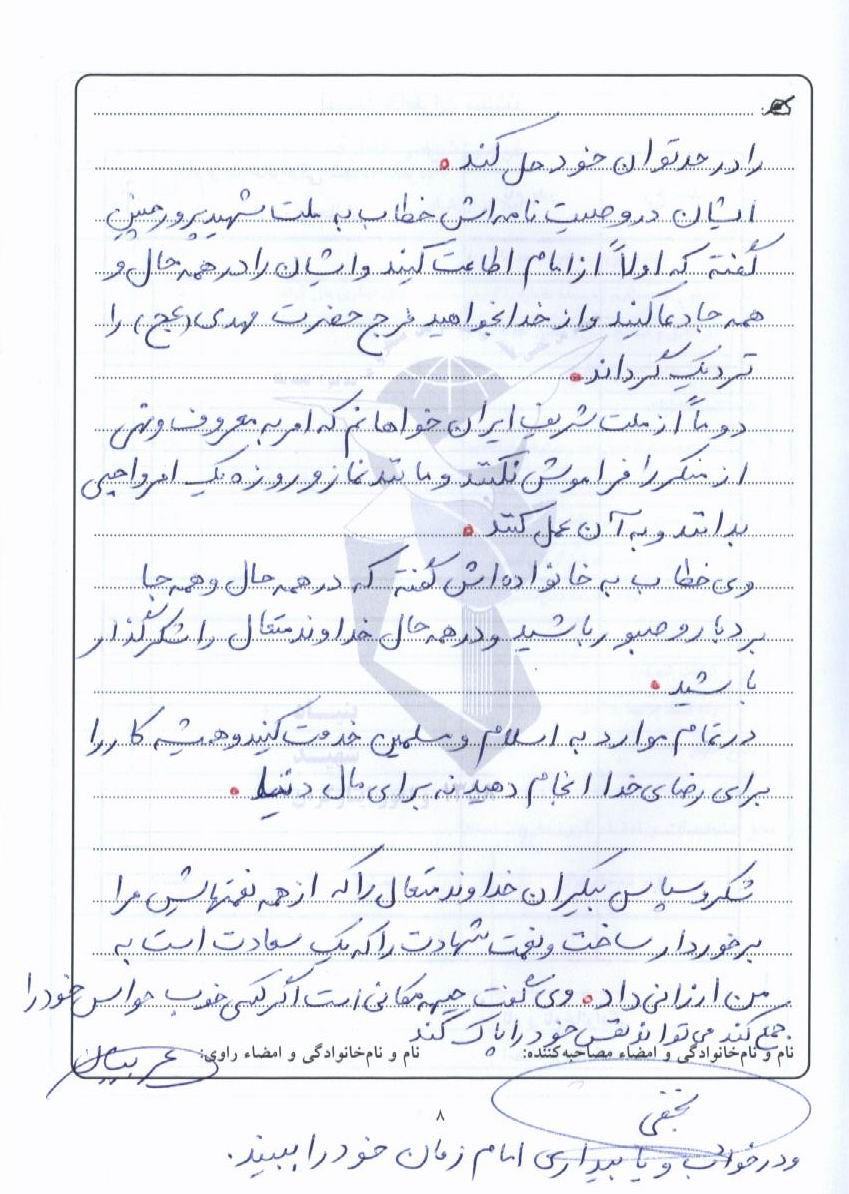 را در حد توان خود حل کند.
ایشان در وصیت نامه‌اش خطاب به ملت شهیدپرور چنین
گفته که اولاً از امام اطاعت کنید و ایشان را در همه حال و
همه جا دعا کنید و از خدا بخواهید فرج حضرت مهدی (عج) را
نزدیک گرداند.
دوماً از ملت شریف ایران خواهانم که امر به معروف و نهی
از منکر را فراموش نکنند و مانند نماز و روزه یک امر واجبی
بدانند و به آن عمل کنند.
وی خطاب به خانواده‌اش گفته که در همه حال و همه جا
بردبار و صبور باشید و در همه حال خداوند متعال را شکرگذار
باشید.
در تمام موارد به اسلام و مسلمین خدمت کنید و همیشه کار را
برای رضای خدا انجام دهید نه برای مال دنیا.
شکر و سپاس بیکران خداوند متعال را که از همه نعمتهایش مرا
برخوردار ساخت و نعمت شهادت را که یک سعادت است به
من ارزانی داد. وی گفت جبهه مکانی است اگر کسی خوب حواس خود را
جمع کند می‌تواند نفس خود را پاک کند
نام و نام‌خانوادگی و امضاء مصاحبه‌کننده: نام و نام‌خانوادگی و امضاء راوی:
نجفی
۸
و در خواب و یا بیداری امام زمان خود را ببیند.